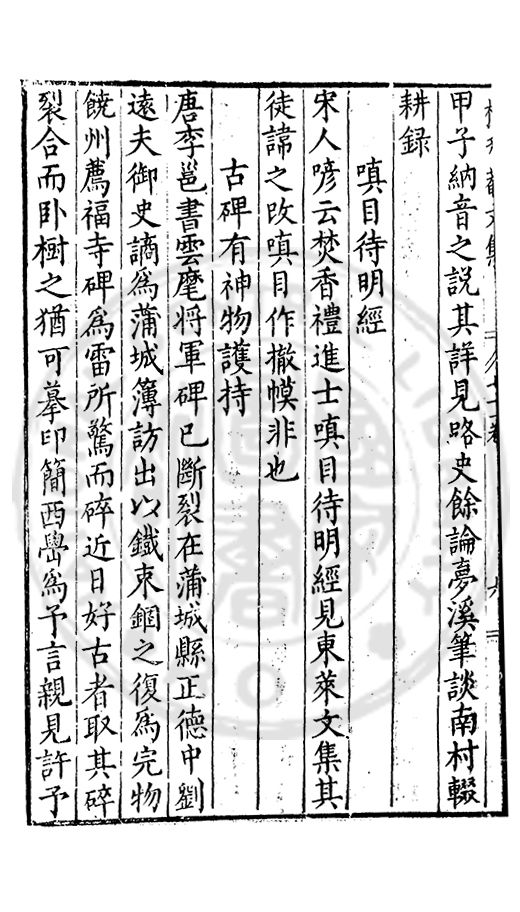 甲子納音之說其詳見路史餘論夢溪筆談南村輟
耕録
嗔目待明經
宋人嗲云焚香禮進士嗔目待明經見東萊文集其
徒諱之改嗔目作撤幙非也
古碑有神物護持
唐李邕書雲麾將軍碑已斷裂在蒲城縣正德中劉
遠夫御史謫爲蒲城簿訪出以鐵束錮之復爲完物
饒州薦福寺碑爲雷所驚而碎近日好古者取其碎
裂合而卧樹之猶可摹印簡西嶨爲予言親見許予